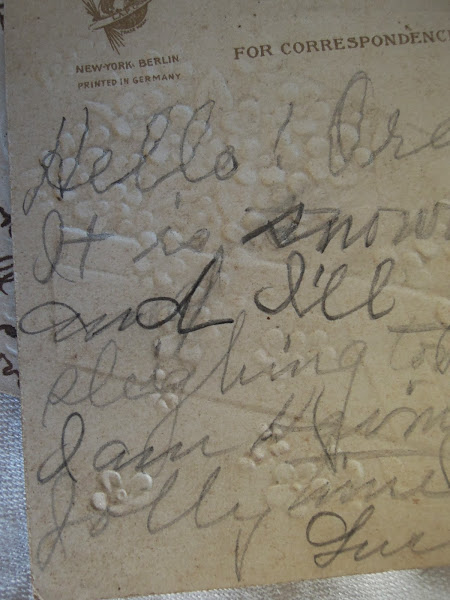 NEW-YORK, BERLIN
PRINTED IN GERMANY
FOR CORRESPONDENC
Hello! Bre
It is snow
and I'll
sleighing to
I am
Jolly time